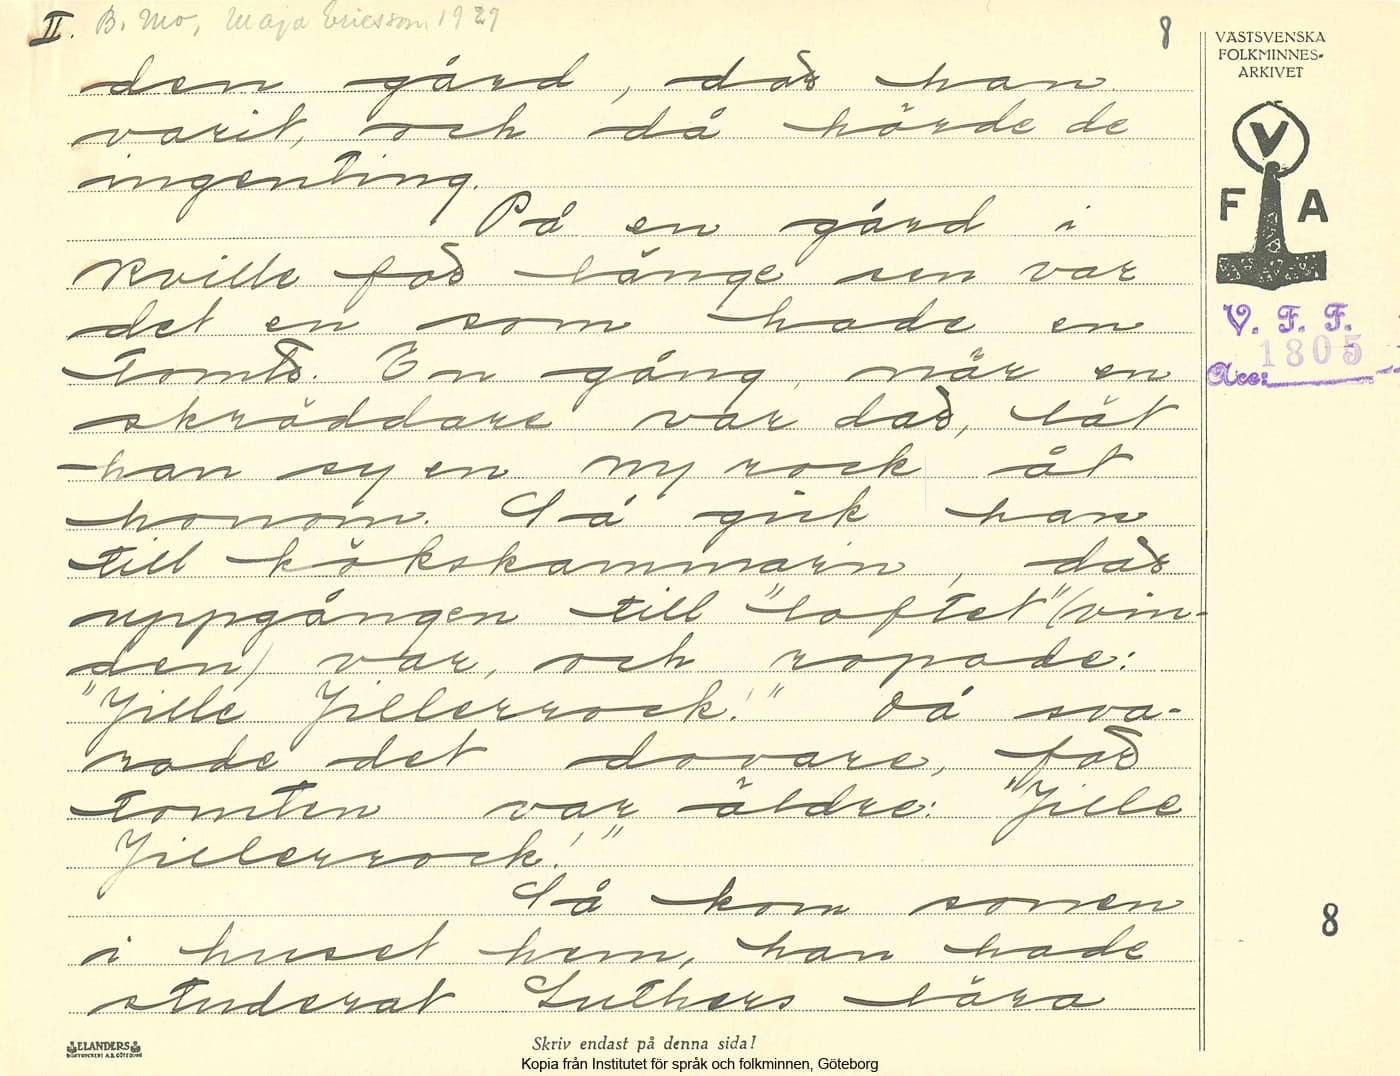 II. B. Mo, Maja Ericsson 1929
8
VÄSTSVENSKA
FOLKMINNES-
ARKIVET
V
F A
V. F. F.
1805
Acc:
den gård, där han
varit, och då hörde de
ingenting.
På en gård i
Kville för länge sen var
det en som hade en
tomte. En gång, när en
skräddare var där, lät
han sy en ny rock åt
honom. Så gick han
till kökskammarn, där
uppgången till "loftet" (vin-
den) var, och ropade:
"Jille Jillerrock!" Då sva-
rade det dovare, för
tomten var äldre: "Jille
Jillerrock!"
Så kom sonen
i huset hem, han hade
studerat Luthers lära
8
ELANDERS
BOKTRYCKERI A.B. GÖTEBORG
Skriv endast på denna sida!
Kopia från Institutet för språk och folkminnen, Göteborg